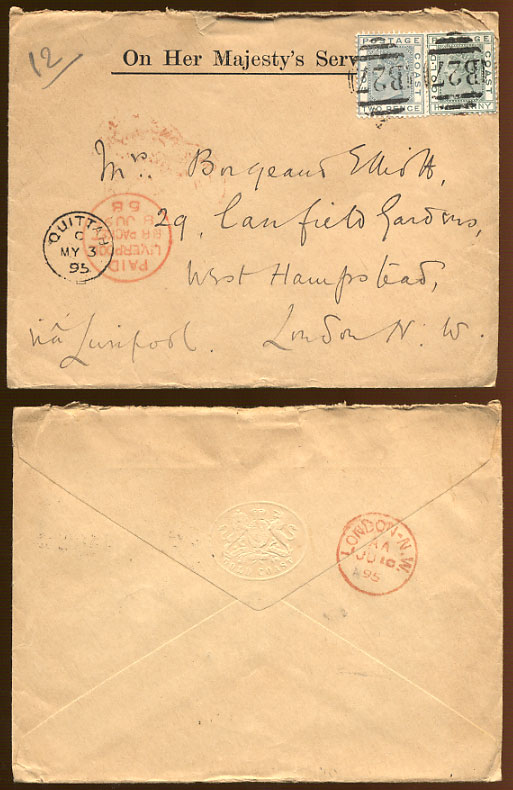 12
On Her Majesty's Serv
POSTAGE
GOLD COAST
TWO PENCE
POSTAGE
GOLD COAST
B27
B27
Mrs. Borgeaud Elliott,
29, Canfield Gardens,
West Hampstead,
via Liverpool. London N. W.
QUITTAH
C
MY 3
95
PAID
LIVERPOOL
BR PACKET
8 JU
GOLD COAST
LONDON-N.W.
JU 10
95